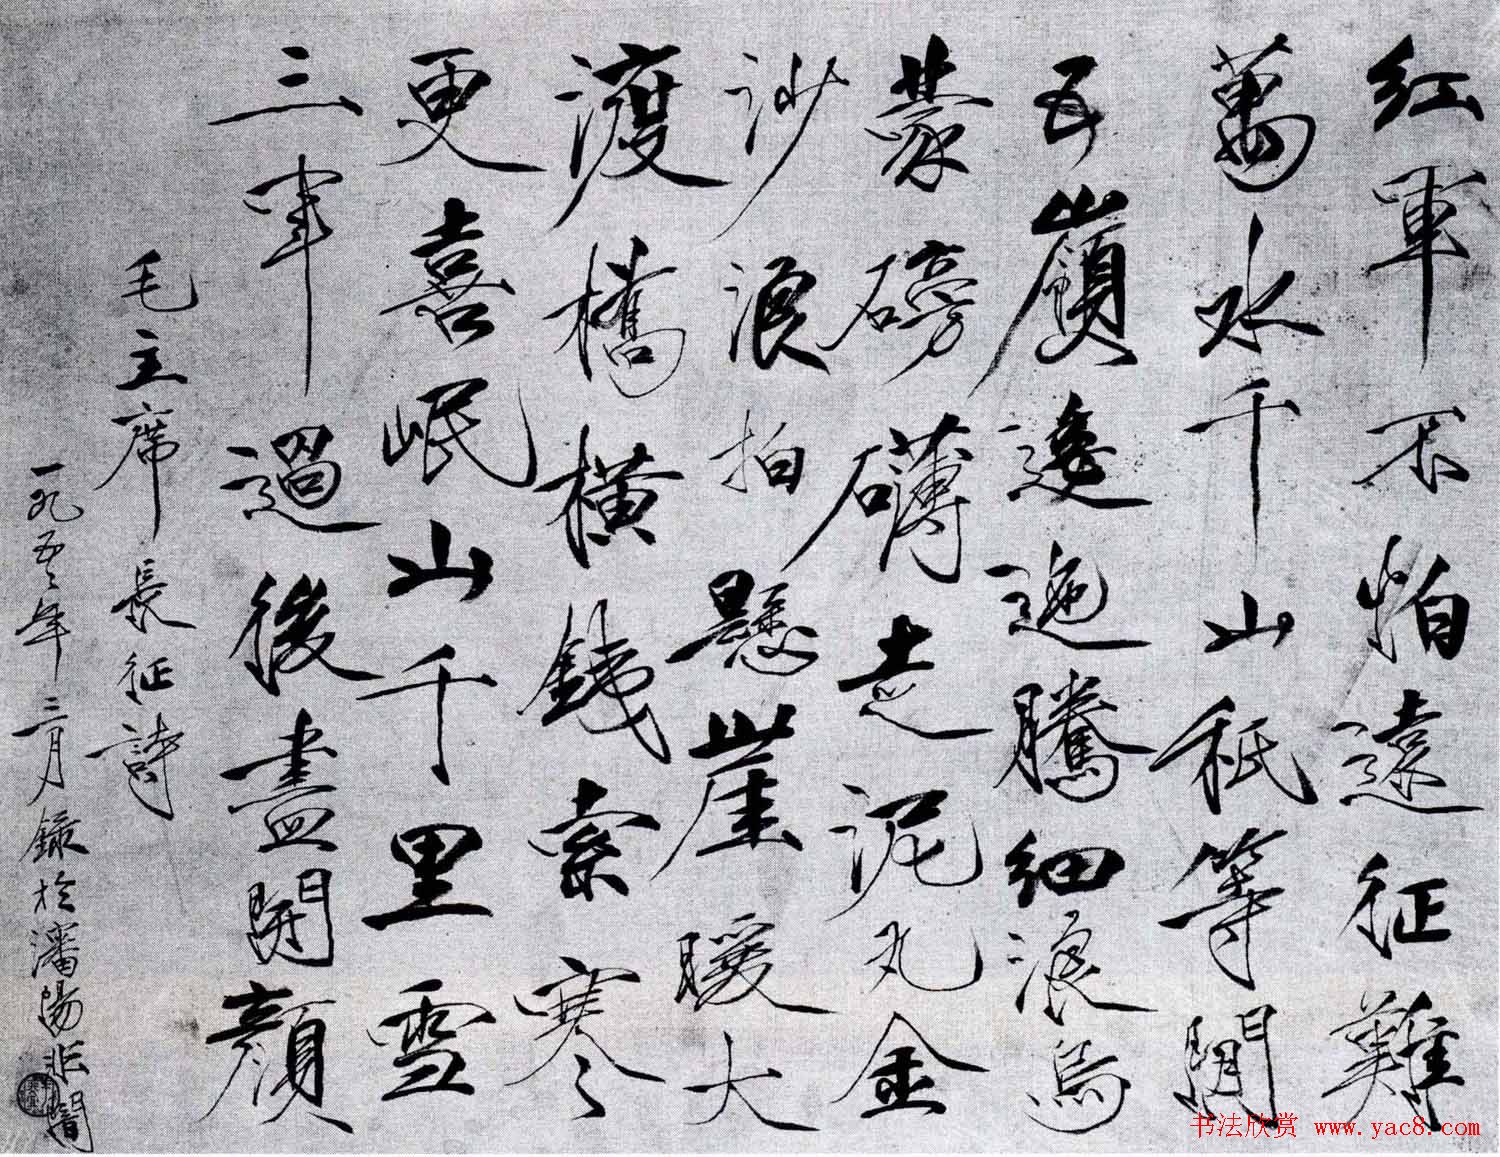 红軍不怕遠征難
萬水千山秖等閒
五嶺逶迤騰細浪烏
蒙磅礴走泥丸金
沙浪拍懸崖暖大
渡橋橫鉄索寒
更喜岷山千里雪
三軍過後盡開顔
毛主席長征詩
一九五二年三月録於瀋陽非闇
书法欣赏 www.yac8.com